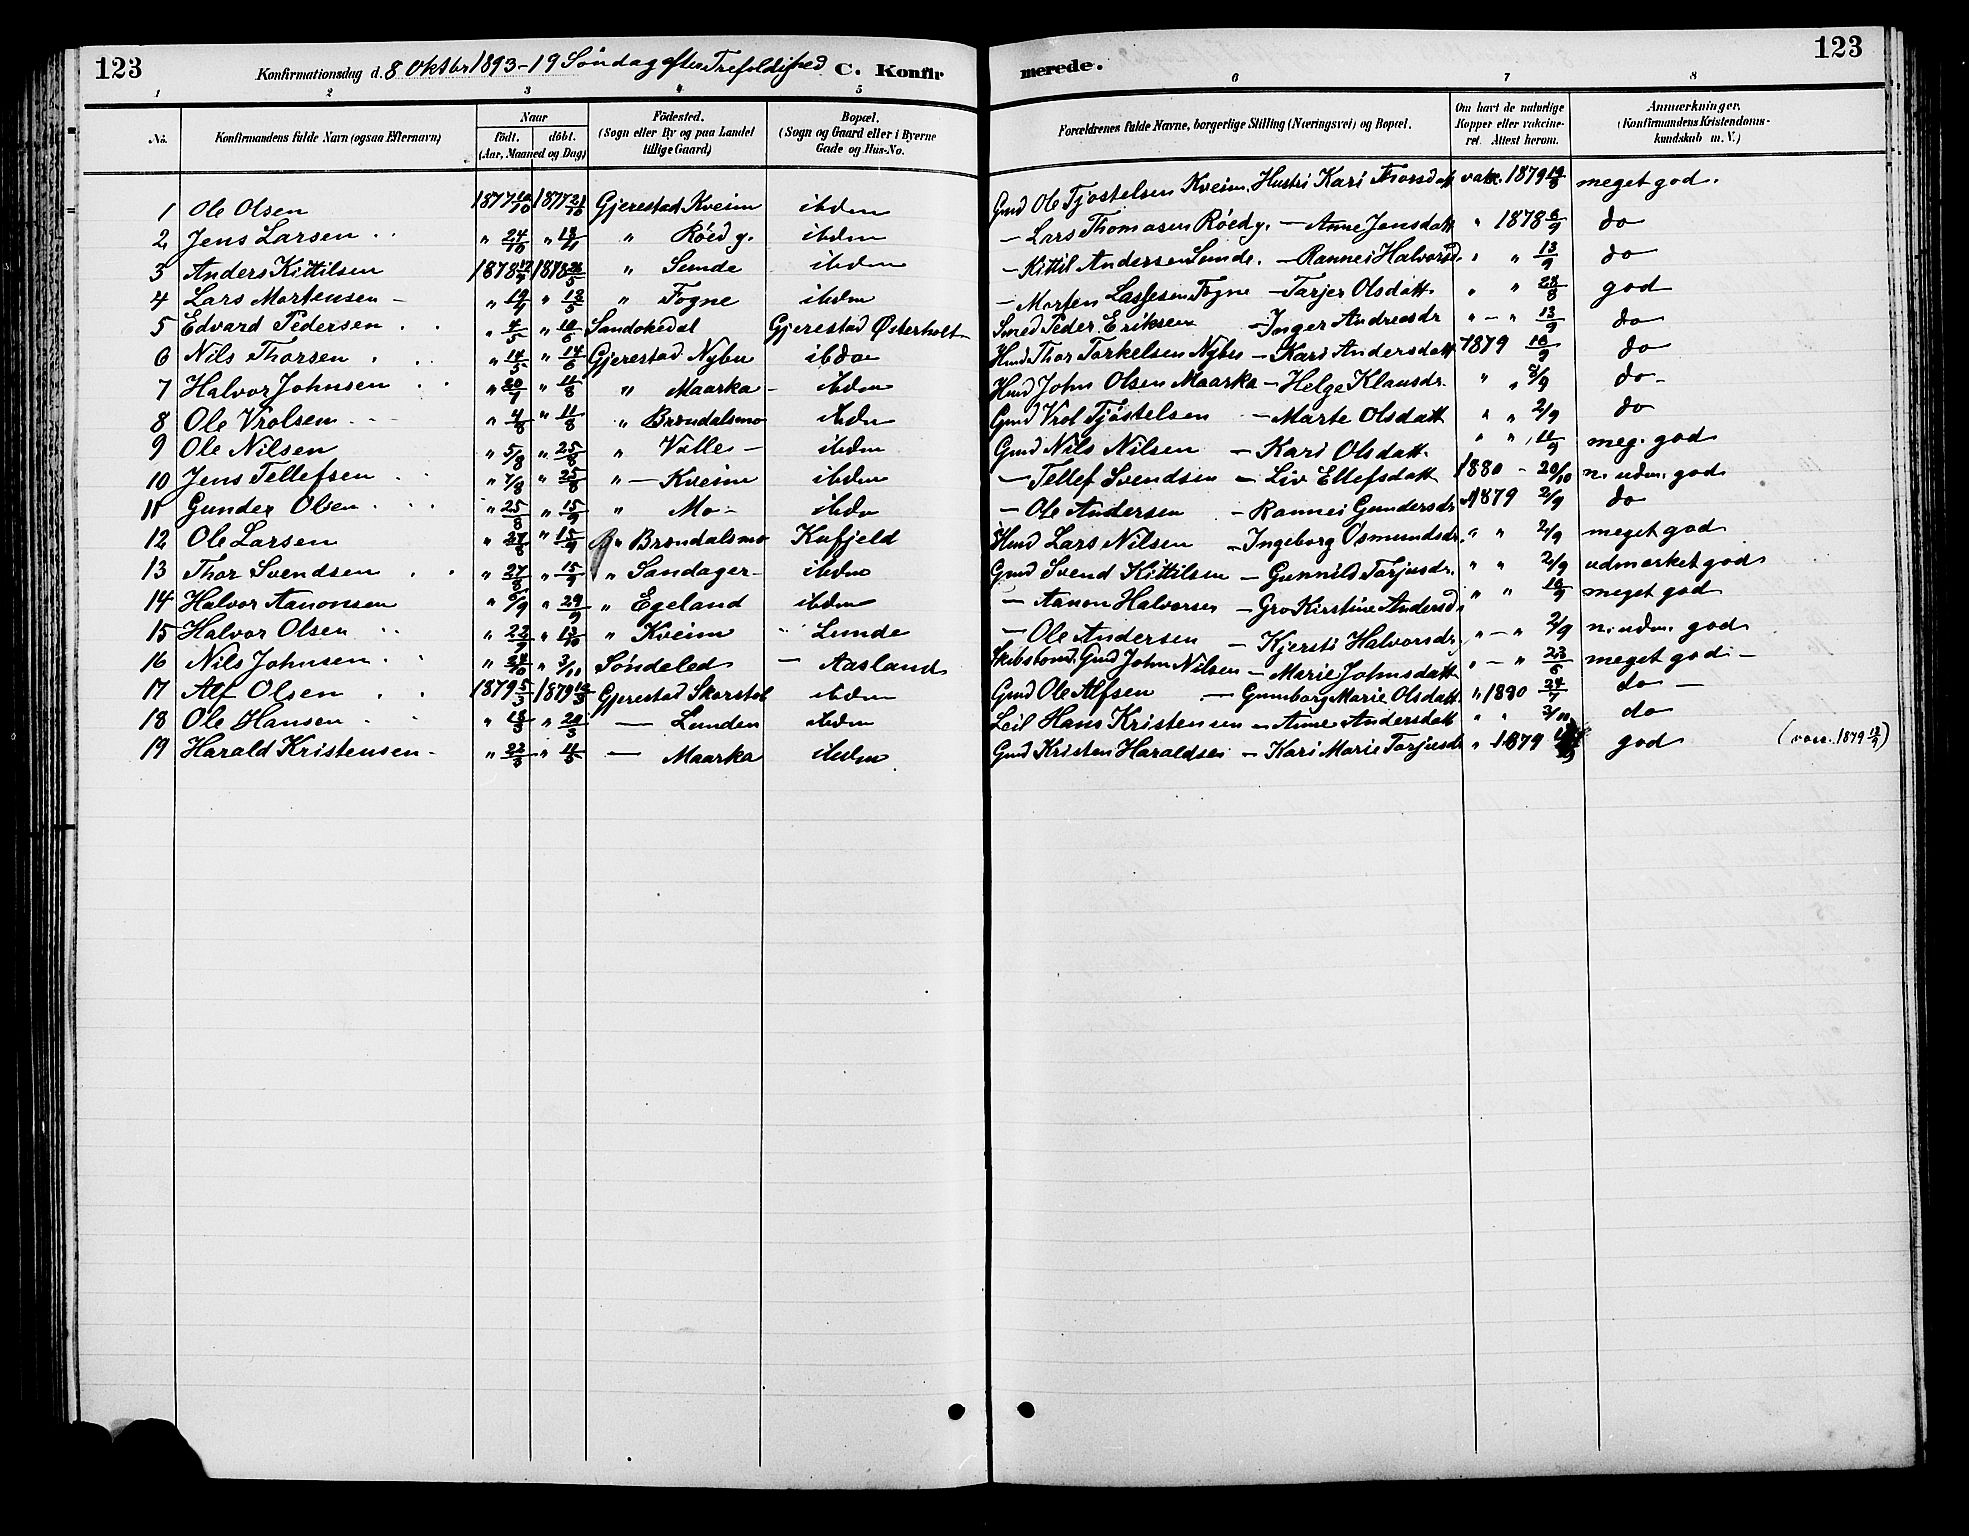 123 Konfirmationsdag d. 8 Oktbr 1893 - 19 Søndag efter Trefoldighed C. Konfir merede. 123
1 2 3 4 5 6 7 8
No. Konfirmandens fulde Navn (ogsaa Efternavn) Naar født. døbt. (Aar, Maaned og Dag) Födested. (Sogn eller By og paa Landet tillige Gaard) Bopæl. (Sogn og Gaard eller i Byerne Gade og Hus-No. Forældrenes fulde Navne, borgerlige Stilling (Næringsvei) og Bopæl. Om havt de naturlige Kopper eller vakcineret. Attest herom. Anmærkninger. (Konfirmandens Kristendomskundskab m. V.)
1 Ole Olsen 1877 1877 21/10 Gjerestad Kveim ibdm Gmd Ole Tjostelsen Kveim. Hustri Kari Thorsdatt vakc. 1879 19/8 meget god.
2 Jens Larsen " 24/10 " 18/11 " Röed y. ibdm - Lars Thomasen Röed y. - Anne Jensdatt " 1878 6/9 do
3 Anders Kittilsen 1878 1878 26/5 " Lunde ibdm - Kittil Andersen Lunde. - Rannei Halvorsd. " " 13/9 do
4 Lars Mortensen - " " 12/5 " Fogne ibdm - Morten Lassesen Fogne - Tarjer Olsdatt. " " 28/8 god
5 Edvard Pedersen " 4/5 " 10/6 Sandokedal Gjerestad Østerholt Smed Peder Eriksen - Inger Andreasdr " - " 13/9 do
6 Nils Thorsen " 14/5 " 14/6 Gjerestad Nybu ibdm Hmd Thor Torkelsen Nybu - Kari Andersdatt 1879 10/9 do
7 Halvor Johnsen " 20/7 " 11/8 " Maarka - ibdm Hmd John Olsen Maarka - Helge Klausdr. " " 8/9 do -
8 Ole Vrolsen " 4/8 " 11/8 " Brøndalsmo ibdm Gmd Vrol Tjøstelsen - Marte Olsdatt " " 2/9 do
9 Ole Nilsen " 5/8 " 25/8 " Valle - ibdm Gmd Nils Nilsen - Kari Olsdatt. " " 11/9 meg. god
10 Jens Tellefsen " 7/8 " 25/8 " - Kveim ibdm - Tellef Svendsen - Liv Ellefsdatt 1880 - 20/10 n. udm. god
11 Gunder Olsen " 25/8 " 15/9 " Mo - ibdm - Ole Andersen - Rannei Gundersdr 1879 2/9 do
12 Ole Larsen " 27/8 " 15/9 " Brøndalsmo Kufjeld Hmd Lars Nilsen - Ingeborg Osmundsdr. " " 2/9 meget god
13 Thor Svendsen " 27/8 " 15/9 " Sandager - ibdm Gmd Svend Kittilsen - Gunnild Tarjusdr. " " 2/9 udmærket god
14 Halvor Aanonsen " 6/9 " 29/9 " Egeland ibdm - Aanon Halvorsen - Gro Kirstine Andersd. " " 10/9 meget god
15 Halvor Olsen " 22/9 " 13/10 " Kveim " Lunde - Ole Andersen - Kjersti Halvorsdr. " - " 2/9 n. udm. god
16 Nils Johnsen " 24/10 " 3/11 Søndeled - Aasland Skibstømd. Gmd John Nilsen - Marie Johnsdatt " - " 23/6 meget god -
17 Alf Olsen 1879 5/3 1879 Gjerestad Skorstøl ibdm Gmd Ole Alfsen - Gunnborg Marie Olsdatt " 1880 24/7 do -
18 Ole Hansen " 18/3 " 20/3 - Lunden ibdm Leil Hans Kristensen - Anne Andersdatt " " 3/10 do
19 Harald Kristensen - " 22/3 " 4/5 - Maarka ibdm Gmd Kristen Haraldsen - Kari Marie Tarjusdr " 1879 god (vacc. 1879 12/9)